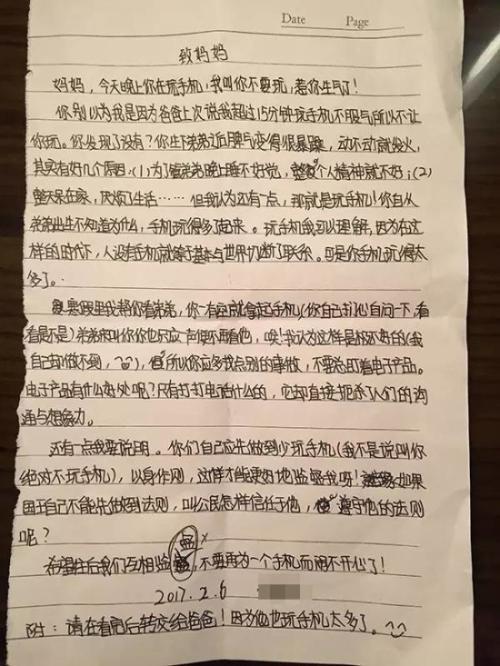 Date Page
致妈妈
妈妈，今天晚上你在玩手机，我叫你不要玩，惹你生气了！
你别以为我是因为爸爸上次说我超过15分钟玩手机不服气所以不让
你玩。你发现了没有？你生下弟弟后脾气变得很暴躁，动不动就发火，
其实有好几个原因：(1)为了管弟弟晚上睡不好觉，整个人精神就不好；(2)
整天呆在家，厌烦了生活……但我认为还有一点，那就是玩手机！你自从
弟弟出生不知道为什么，手机玩得多了起来。玩手机我可以理解，因为在这
样的时代下，人没有手机就等于基本与世界切断了联系。可是你手机玩得太
多了。
要是家里我帮你看弟弟，你一有空就拿起手机(你自己扪心自问一下，看
看是不是)弟弟来叫你你也只应一声便不再看他，唉！我认为这样是极不好的(我
自己却做不到，)，所以你应多找点别的事做，不要总盯着电子产品。
电子产品有什么好处呢？只有打打电话什么的，它却直接扼杀了人们的沟
通与想象力。
还有一点我要说明。你们自己应先做到少玩手机(我不是说叫你
绝对不玩手机)，以身作则，这样才能更好地监督我呀！如果
国王自己不能先做到法则，叫公民怎样信任于他，遵守他的法则
呢？
希望往后我们互相监督，不要再为一个手机而闹不开心了！
2017.2.6
附：请在看完后转交给爸爸！因为他也玩手机太多了。